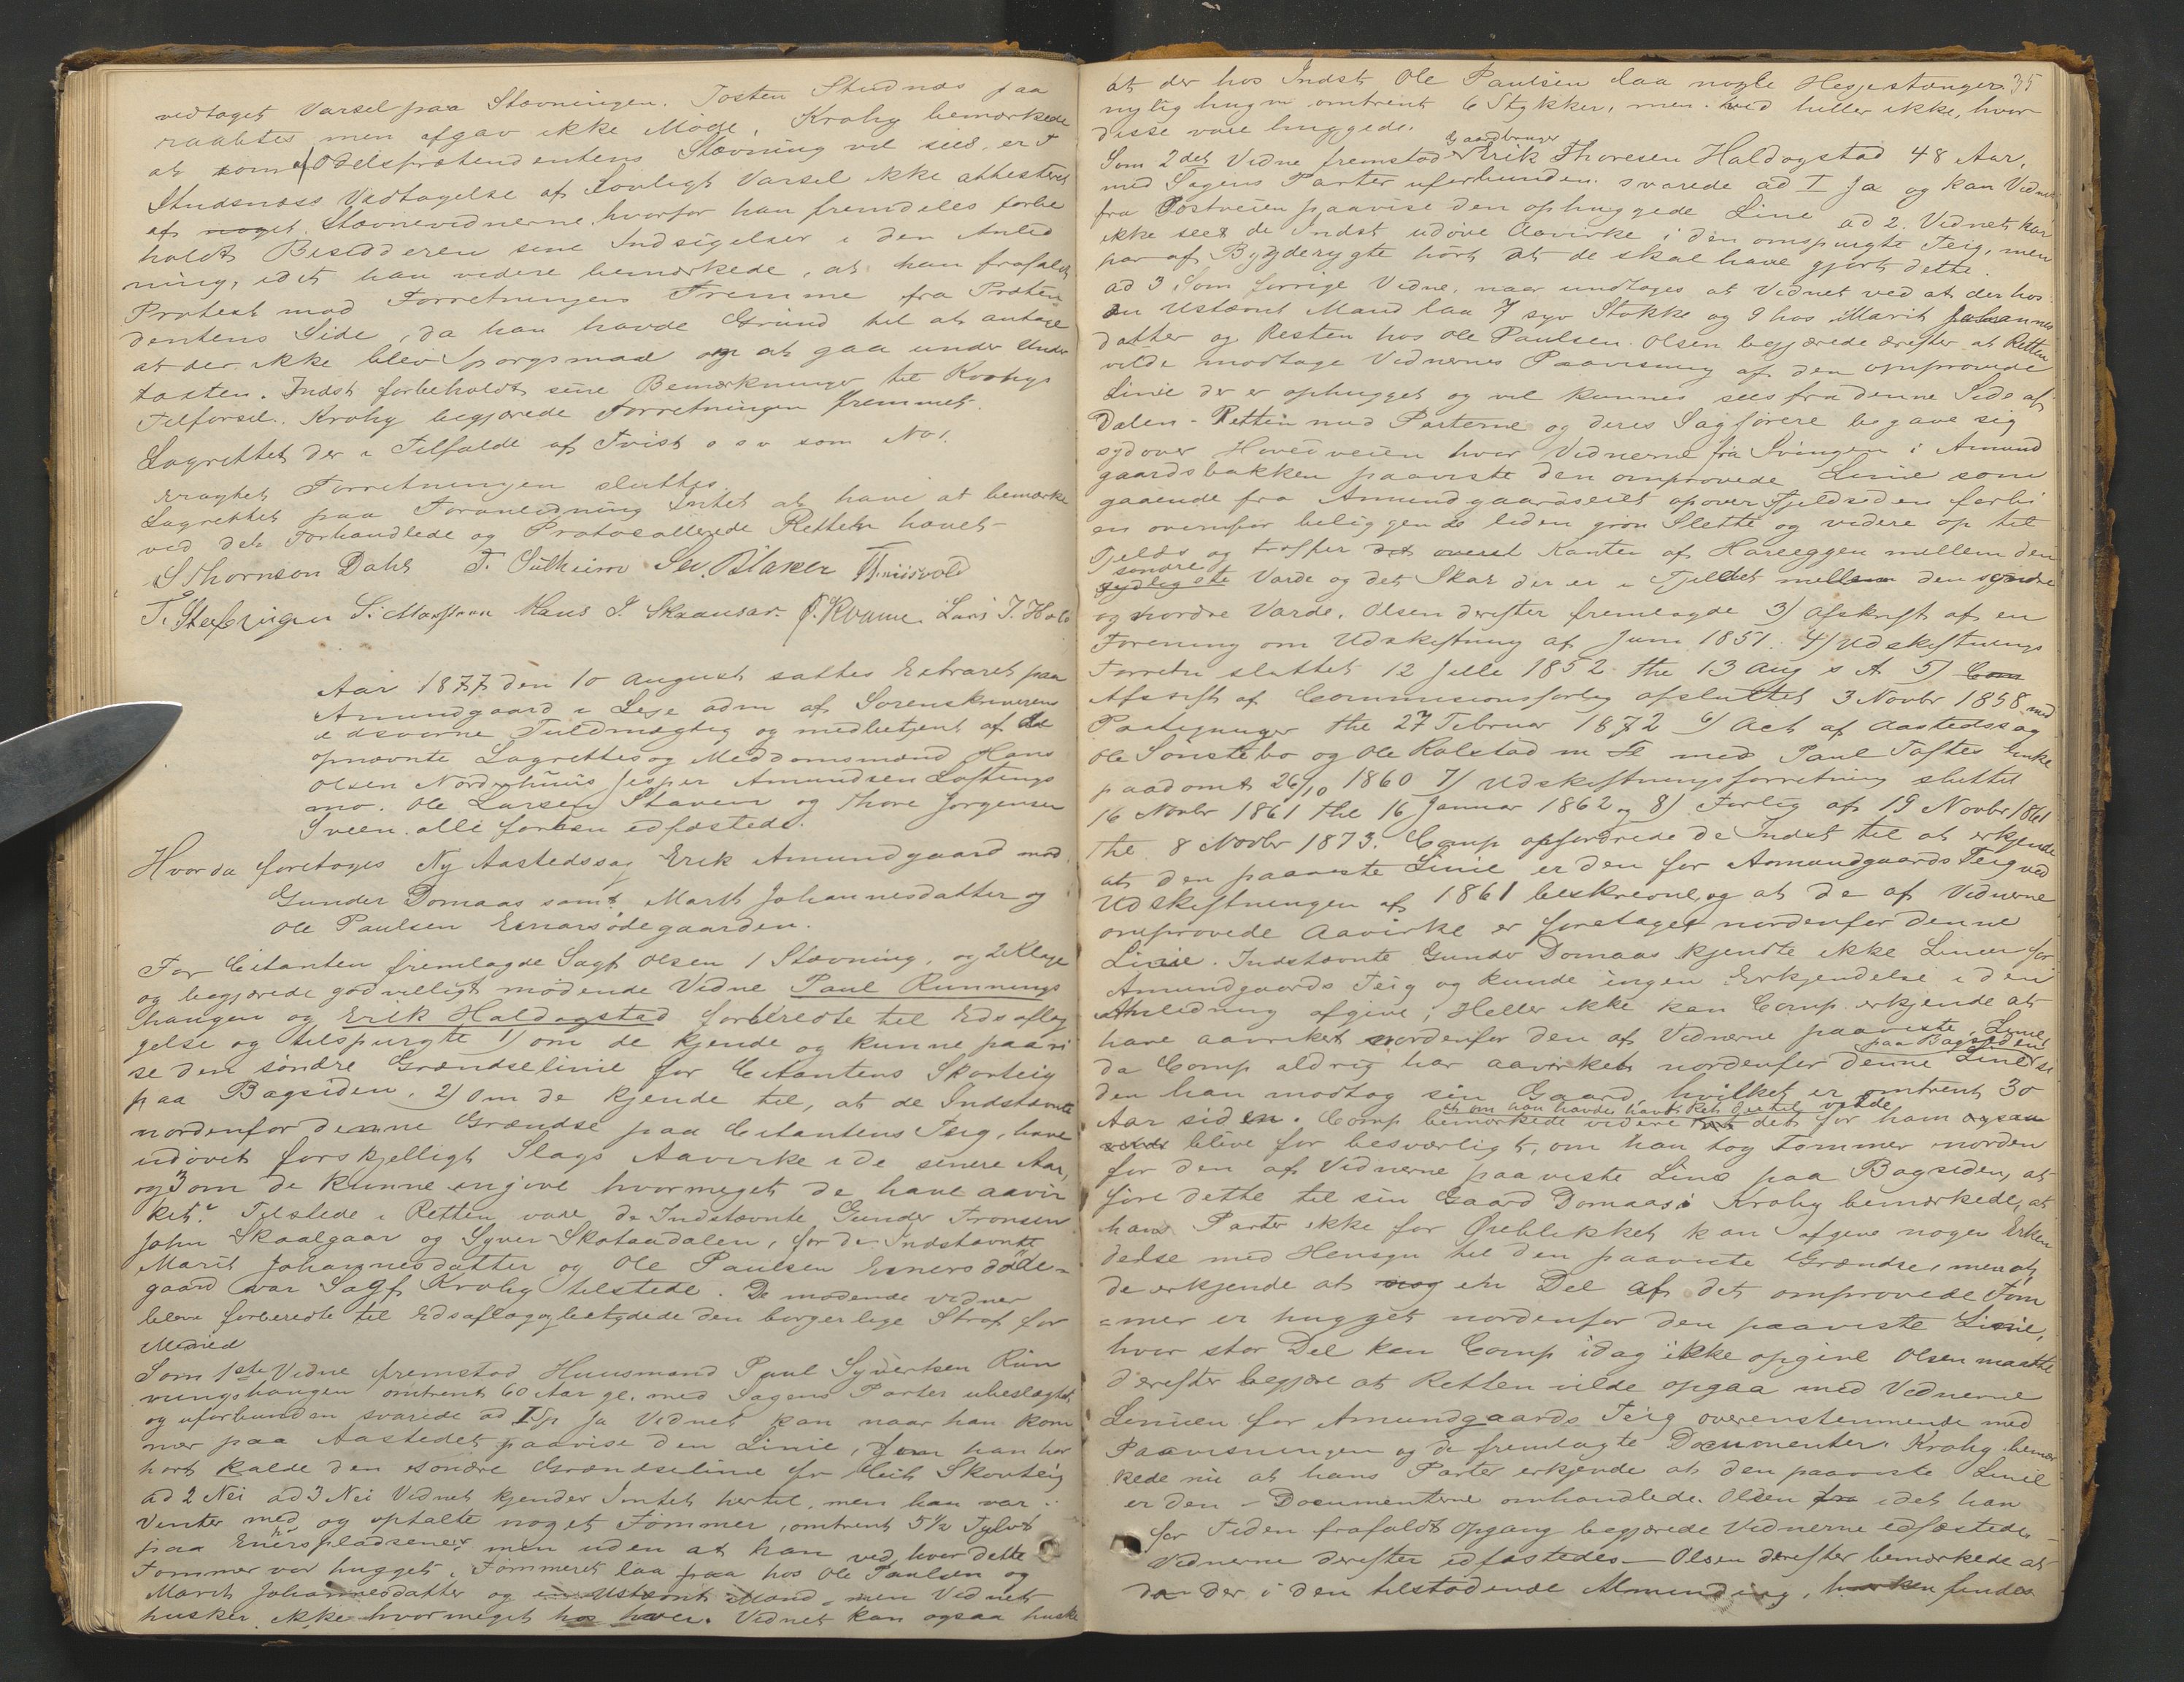 vedtaget Varsel paa Stævningen. Josten Studnæs paa
raabtes men afgav ikke Møde. Krohg bemærkede
at som af Odelsprætendentens Stævning vil sees, er
Studsnæss Vedtagelse af Lovligt Varsel ikke attesteret
af noget Stævnevidnerne, hvorfor han fremdeles forbe
holdt Besidderen sine Indsigelser i den Anled
ning, idet han videre bemærkede, at han frafaldt
Protest mod Forretningens Fremme fra Præten
dentens Side, da han havde Grund til at antage
at der ikke blev Spørgsmaal om at gaa under Under
taxten. Indst forbeholdt sine Bemærkninger til Krohgs
Tilførsel. Krohg begjærede Forretningen fremmet.
Lagrettet der i Tilfælde af Tvist o s v som No 1.
eragtet Forretningen sluttes.
Lagrettet paa Foranledning Intet at have at bemærke
ved det Forhandlede og Protocollerede Retten hævet-
S Thornson Dahl T. Sulheim Sv. Blaker
Hans J. Skaansar. Kvame. Lars J. Hole
Aar 1877 den 10 August sattes Extraret paa
Amundgaard i Lesje adm af Sorenskriverens
edsvorne Fuldmægtig og medbetjent af de
opnævnte Lagrettes og Meddomsmænd Hans
Olsen Nordenhuus Jesper Amundsen Loftings
mo. Ole Larsen Staven og Thore Jørgensen
Sveen. alle forhen edfæstede.
Hvorda foretoges Ny Aastedssag Erik Amundgaard mod
Gunder Domaas samt Marit Johannesdatter og
Ole Paulsen Enarsødegaarden.
For Citanten fremlagde Sagf Olsen 1 Stævning, og 2 Klage
og begjærede godvilligt mødende Vidne Paul Runnings
haugen og Erik Holdogstad forberedte til Eds aflæg
gelse og tilspurgte 1) om de kjende og kunne paavi
se den søndre Grændselinie for Citantens Skovteig
paa Bagsiden, 2) Om de kjende til, at de Indstævnte
nordenfor denne Grændse paa Citantens Teig, have
udøvet forskjelligt Slags Aavirke i de senere Aar,
og 3 om de kunne angive hvormeget de have aavir
ket? Tilstede i Retten vare de Indstævnte Gunder Tronsen
John Skaalgaar og Syver Skotaadalen, for de Indstævnte
Marit Johannesdatter og Ole Paulsen Enersøde=
gaard var Sagf Krohg tilstede. De mødende vidner
bleve forberedte til Edsaflæg og betydede den borgerlige Straf for
Meened
Som 1ste Vidne fremstod Huusmand Paul Syversen Run
ningshaugen omtrent 60 Aar gl. med Sagens Parter ubeslægtet
og uforbunden svarede ad I Sp Ja Vidnet kan naar han kom
mer paa Aastedet paavise den Linie, som han har
hørt kalde den søndre Grændselinie for Cit Skovteig
ad 2 Nei ad 3 Nei Vidnet kjender Intet hertil, men han var i
Vinter med og optalte noget Tømmer, omtrent 5½ Tylvt
paa Enerspladsene, men uden at han ved, hvor dette
Tømmer var hugget. Tømmeret laa paa hos Ole Paulsen og
Marit Johannesdatter og en Ustævnt Mand, men Vidnet
husker ikke hvormeget hos hver. Vidnet kan ogsaa huske
35
at der hos Indst Ole Paulsen laa nogle Hesjestænger
nylig hugne omtrent 6 Stykker, men ved heller ikke, hvor
disse vare huggede.
Gaardbruger
Som 2det Vidne fremstod Erik Thoresen Holdogstad 48 Aar,
med Sagens Parter uforbunden. svarede ad I Ja og kan Vidnet
fra Postveien paavise den ophuggede Linie ad 2. Vidnet har
ikke seet de Indst udøve Aavirke i den omspurgte Teig, men
har af Bygderygte hørt at de skal have gjort dette.
ad 3 Som forrige Vidne, naar undtages at Vidnet ved at der hos
en Ustævnt Mand laa 7 syv Stokke og 9 hos Marit Johannes
datter og Resten hos Ole Paulsen. Olsen begjærede derefter at Retten
vilde modtage Vidnernes Paavisning af den omprovede
Linie der er ophugget og vil kunnes sees fra denne Side af
Dalen - Retten med Parterne og deres Sagførere begave sig
sydover Hovedveien hvor Vidnerne fra Svingen i Amund
gaardsbakken paaviste den omprovede Linie som
gaaende fra Amundgaardsseiet opover Fjeldsiden forbi
en ovenfor beliggende liden grøn Slette og videre op til
Fjelds og træffer det øverst Kanten af Hareeggen mellem den
søndre
sydligste Varde og det Skar der er i Fjeldet mellem den søndre
og nordre Varde. Olsen derefter fremlagde 3) Afskrift af en
Forening om Udskiftning af Juni 1851. 4) Udskiftnings
Forretn sluttet 12 Julli 1852 thl 13 Aug s A 5) Com
Afskrift af Commissionsforlig afsluttet 3 Novbr 1858 med
Paategninger thl 27 Februar 1872 6) Act af Aastedssag
Ole Sønstebo og Ole Rolstad m Fl med Paul Toftes Enke
paadømt 26/10 1860 7) Udskiftningsforretning sluttet
16 Novbr 1861 thl 16 Januar 1862 og 8) Forlig af 19 Novbr 1861
thl 8 Novbr 1873. Comp opfordrede de Indst til at erkjende
at den paaviste Linie er den for Amundgaards Teig ved
Udskiftningen af 1861 beskrevne, og at de af Vidnerne
omprovede Aavirke er foretaget nordenfor denne
Linie. Indstævnte Gunder Domaas kjendte ikke Linien for
Amundgaards Teig og kunde ingen Erkjendelse i den
Anledning afgive; Heller ikke kan Comp. erkjende at
have aavirket nordenfor den af Vidnerne paaviste Linie
paa Bagsiden
da Comp aldrig har aavirket nordenfor denne Linie si
den han modtog sin Gaard, hvilket er omtrent 30
at om han havde havt Ret dertil vilde
Aar siden. Comp bemærkede videre det for ham ogsaa
bleve for besværligt, om han tog Tømmer norden
for den af Vidnerne paaviste Linie paa Bagsiden, at
føre dette til sin Gaard Domaas. Krohg bemærkede, at
hans Parter ikke for Øieblikket kan afgive nogen Erkjen
delse med Hensyn til den paaviste Grændse, men at
de erkjende at nog en Del af det omprovede Tøm
=mer er hugget nordenfor den paaviste Linie,
hvor stor Del kan Comp idag ikke opgive Olsen maatte
derefter begjære at Retten vilde opgaa med Vidnerne
Linien for Amundgaards Teig overenstemmende med
Paavisningen og de fremlagte Documenter. Krohg bemær
kede nu at hans Parter erkjende at den paaviste Linie
er den i Documenterne omhandlede. Olsen fra idet han
for Tiden frafaldt Opgang begjærede Vidnerne edfæstede
Vidnerne derefter edfæstedes - Olsen derefter bemærkede at
da der i den tilstødende Almending, findes